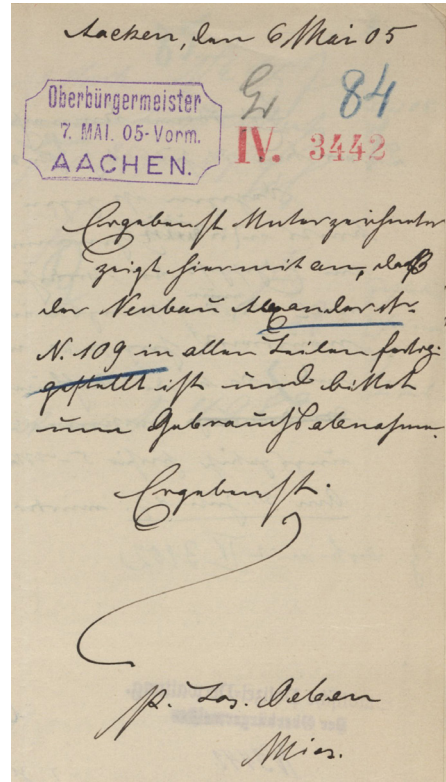 Aachen, den 6 Mai 05
Gr 84
Oberbürgermeister
7. MAI. 05-Vorm.
AACHEN.
IV. 3442
Ergebenst Unterzeichneter
zeigt hiermit an, daß
der Neubau Alexanderstr.
N. 109 in allen Teilen fertig-
gestellt ist und bittet
um Gebrauchsabnahme.
Ergebenst.
p. Jos. Oeben
Mies.